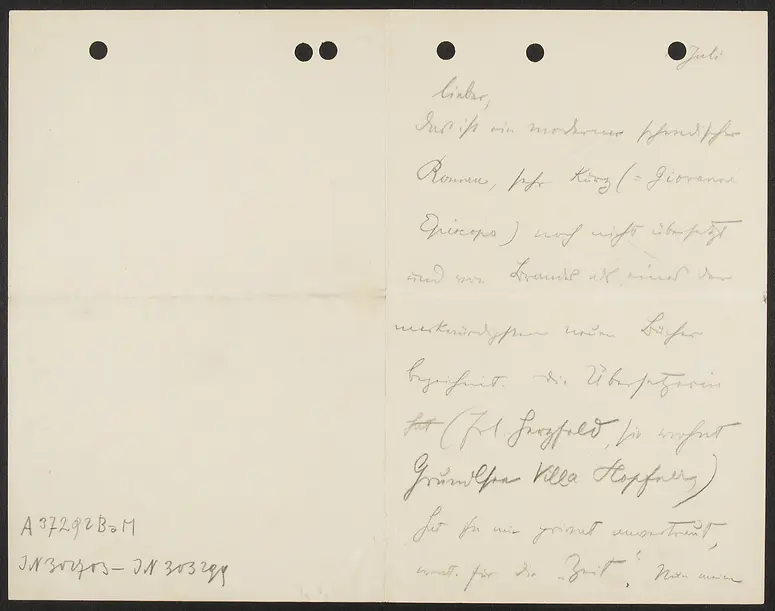 Juli
lieber,
das ist ein moderner schwedischer
Roman, sehr kurz (= Giovanni
Episcopo) noch nicht übersetzt
und von Brandes als eines der
merkwürdigsten neuen Bücher
bezeichnet. Die Übersetzerin
hat (Frl. Herzfeld, sie wohnt
Grundlsee Villa
hat ihn mir privat anvertraut,
event. für die „Zeit“. Nun
A 37292 BaM
IN 302703 – IN 303299